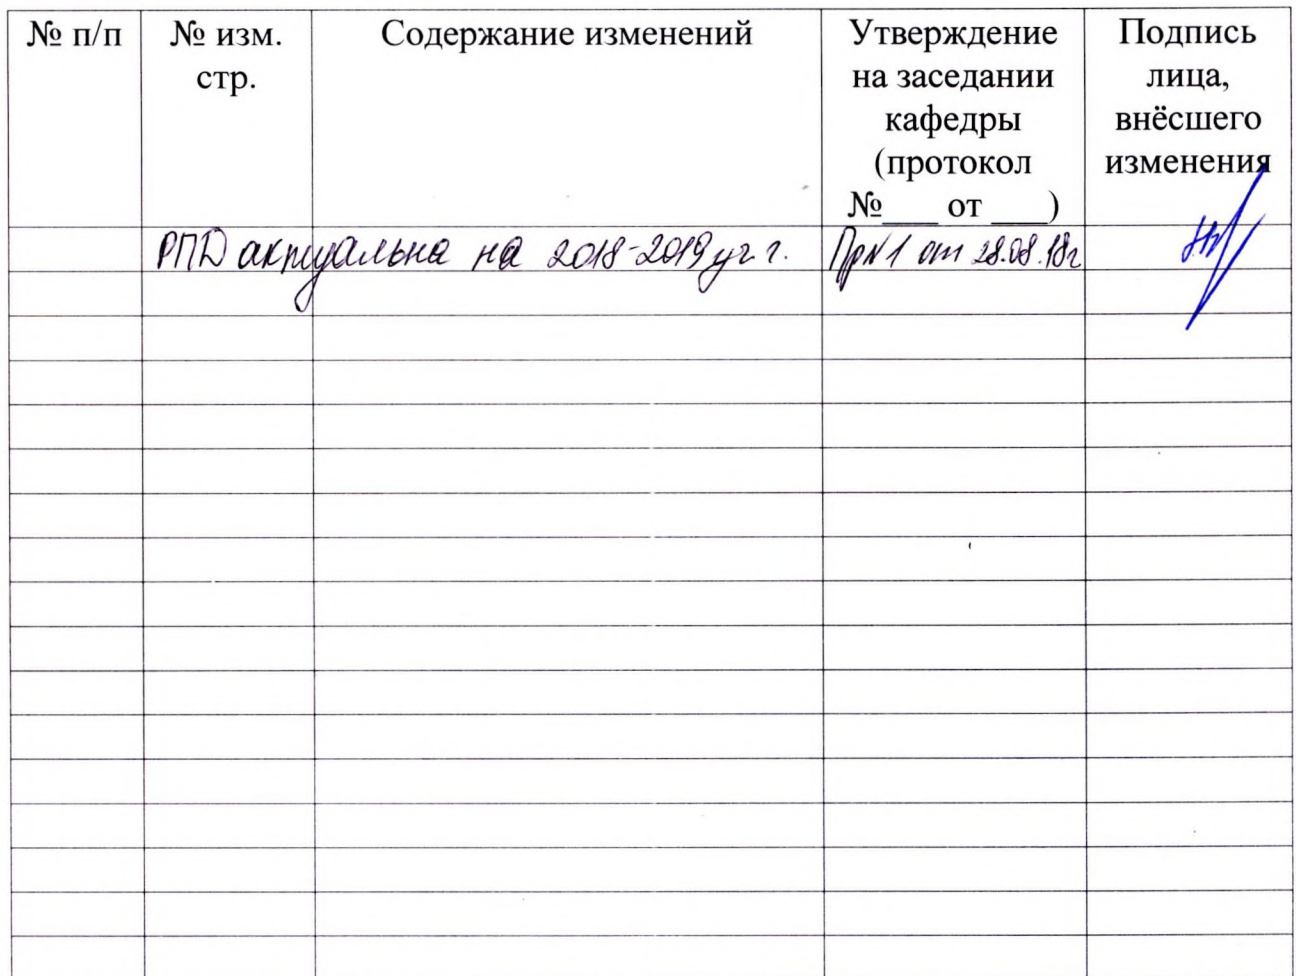 № п/п № изм. стр. Содержание изменений Утверждение на заседании кафедры (протокол №___ от ___) Подпись лица, внёсшего изменения
РПД актуальна на 2018-2019 уч. г. Пр №1 от 28.08.18г